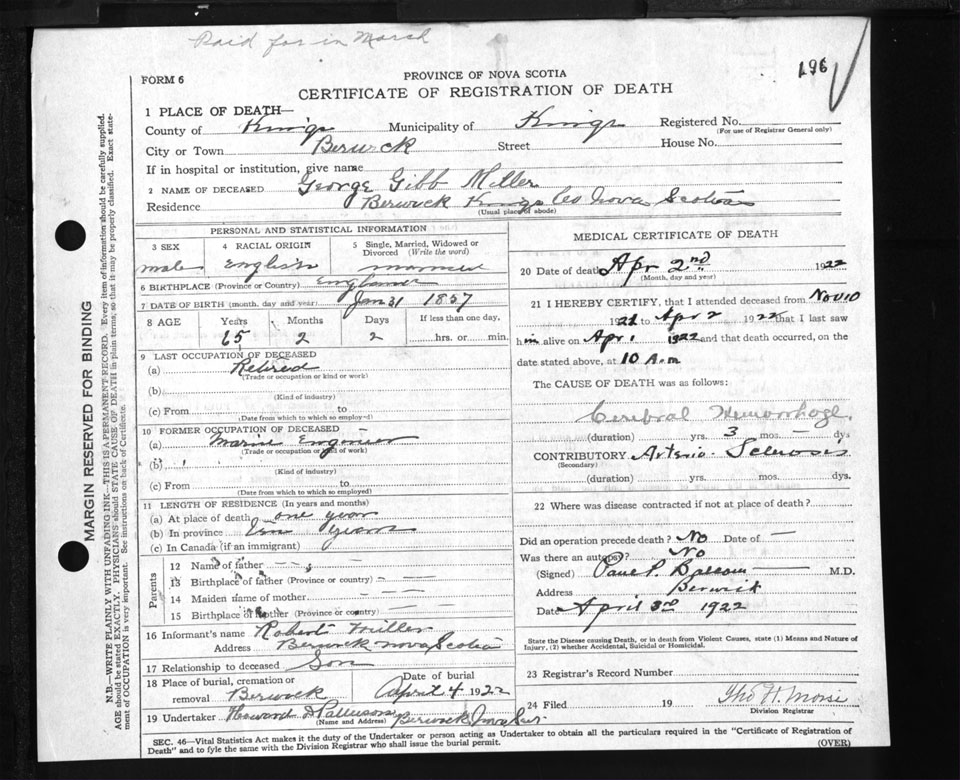 Paid for in March
196
FORM 6
PROVINCE OF NOVA SCOTIA
CERTIFICATE OF REGISTRATION OF DEATH
1 PLACE OF DEATH—
County of Kings Municipality of Kings Registered No.
(For use of Registrar General only)
City or Town Berwick Street House No.
If in hospital or institution, give name
2 NAME OF DECEASED George Gibb Miller
Residence Berwick Kings Co Nova Scotia
(Usual place of abode)
PERSONAL AND STATISTICAL INFORMATION
3 SEX 4 RACIAL ORIGIN 5 Single, Married, Widowed or Divorced (Write the word)
male English married
6 BIRTHPLACE (Province or Country) England
7 DATE OF BIRTH (month, day and year) Jan 31 1857
8 AGE Years Months Days If less than one day.
65 2 2 hrs. or min.
9 LAST OCCUPATION OF DECEASED
(a) Retired
(Trade or occupation or kind or work)
(b)
(Kind of industry)
(c) From to
(Date from which to which so employed)
10 FORMER OCCUPATION OF DECEASED —
(a) Marine Engineer
(Trade or occupation or kind of work)
(b)
(Kind of industry)
(c) From to
(Date from which to which so employed)
11 LENGTH OF RESIDENCE (In years and months)
(a) At place of death one year
(b) In province years
(c) In Canada (if an immigrant)
Parents
12 Name of father — —
13 Birthplace of father (Province or country) — — —
14 Maiden name of mother — — —
15 Birthplace of mother (Province or country) — — —
16 Informant's name Robert Miller
Address Berwick Nova Scotia
17 Relationship to deceased Son
18 Place of burial, cremation or removal Berwick
Date of burial April 4 1922
19 Undertaker Howard Berwick Nova
(Name and Address)
MEDICAL CERTIFICATE OF DEATH
20 Date of death Apr 2nd 1922
(Month, day and year)
21 I HEREBY CERTIFY, that I attended deceased from Nov 10
1921 to Apr 2 1922 that I last saw
him alive on Apr 1 1922 and that death occurred, on the
date stated above, at 10 A.m
The CAUSE OF DEATH was as follows:
Cerebral Hemorrhage
(duration) yrs. 3 mos. — dys
CONTRIBUTORY Arterio-Sclerosis
(Secondary)
(duration) yrs. mos. dys.
22 Where was disease contracted if not at place of death?
Did an operation precede death? No Date of —
Was there an autopsy? No
(Signed) Paul P. Balcom M.D.
Address Berwick
Date April 3rd 1922
State the Disease causing Death, or in death from Violent Causes, state (1) Means and Nature of
Injury, (2) whether Accidental, Suicidal or Homicidal.
23 Registrar's Record Number
24 Filed 19 Tho H. Morse
Division Registrar
SEC. 46—Vital Statistics Act makes it the duty of the Undertaker or person acting as Undertaker to obtain all the particulars required in the "Certificate of Registration of
Death" and to fyle the same with the Division Registrar who shall issue the burial permit.
(OVER)
MARGIN RESERVED FOR BINDING
N.B.—WRITE PLAINLY WITH UNFADING INK—THIS IS A PERMANENT RECORD. Every item of information should be carefully supplied.
AGE should be stated EXACTLY. PHYSICIANS should STATE CAUSE OF DEATH in plain terms, so that it may be properly classified. Exact statement of OCCUPATION is very important. See instructions on back of Certificate.